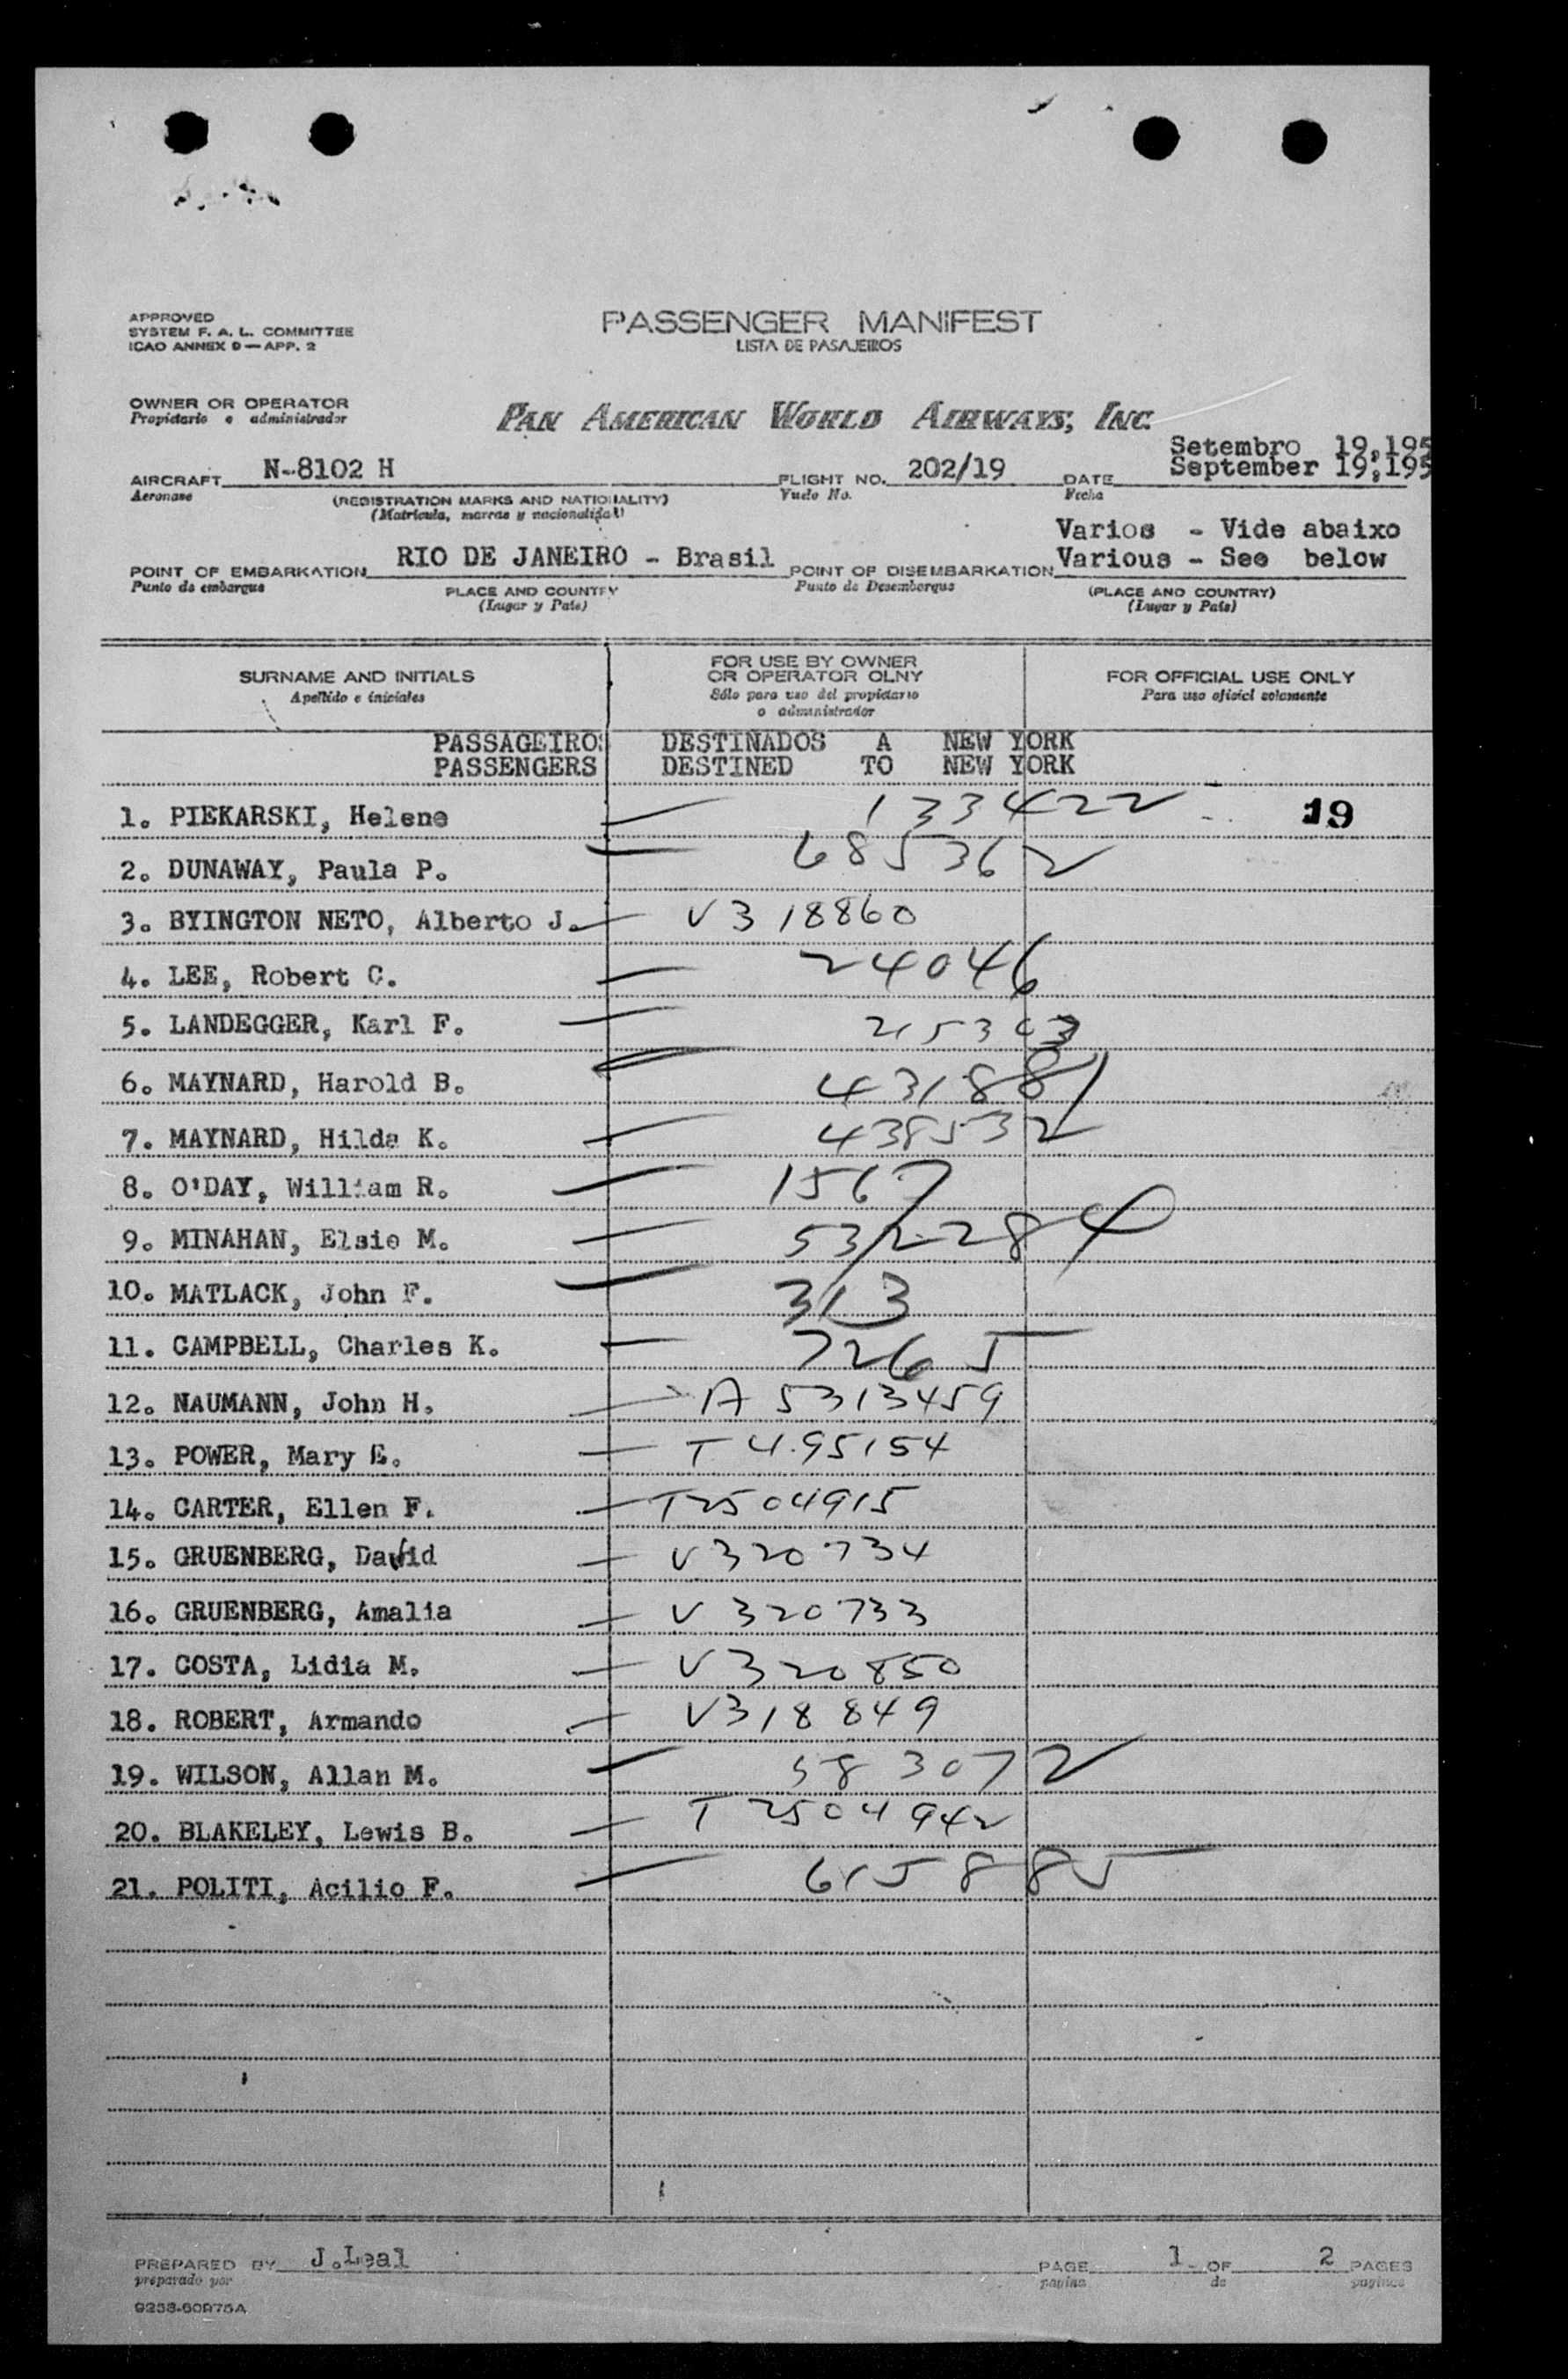 APPROVED
SYSTEM F. A. L. COMMITTEE
ICAO ANNEX 9 — APP. 2
PASSENGER MANIFEST
LISTA DE PASAJEIROS
OWNER OR OPERATOR
Propietario e administrador
PAN AMERICAN WORLD AIRWAYS, INC.
Setembro 19,195
September 19,195
AIRCRAFT N-8102 H FLIGHT NO. 202/19 DATE
Aeronave (REGISTRATION MARKS AND NATIONALITY) Vuelo No. Fecha
(Matricula, marcas y nacionalidad)
Varios - Vide abaixo
POINT OF EMBARKATION RIO DE JANEIRO - Brasil POINT OF DISEMBARKATION Various - See below
Punto de embarque PLACE AND COUNTRY Punto de Desembarque (PLACE AND COUNTRY)
(Lugar y Pais) (Lugar y Pais)
SURNAME AND INITIALS FOR USE BY OWNER OR OPERATOR OLNY FOR OFFICIAL USE ONLY
Apellido e iniciales Sólo para uso del propietario o administrador Para uso oficial solamente
PASSAGEIROS DESTINADOS A NEW YORK
PASSENGERS DESTINED TO NEW YORK
1. PIEKARSKI, Helene 133422 19
2. DUNAWAY, Paula P. 685362
3. BYINGTON NETO, Alberto J. V318860
4. LEE, Robert C. 24046
5. LANDEGGER, Karl F. 215303
6. MAYNARD, Harold B. 431881
7. MAYNARD, Hilda K. 438532
8. O'DAY, William R. 1567
9. MINAHAN, Elsie M. 532284
10. MATLACK, John F. 313
11. CAMPBELL, Charles K. 7265
12. NAUMANN, John H. A 5313459
13. POWER, Mary E. T 495154
14. CARTER, Ellen F. T2504915
15. GRUENBERG, David V320734
16. GRUENBERG, Amalia V 320733
17. COSTA, Lidia M. V320850
18. ROBERT, Armando V318849
19. WILSON, Allan M. 583072
20. BLAKELEY, Lewis B. T 2504942
21. POLITI, Acilio F. 615885
PREPARED BY J.Leal PAGE 1 OF 2 PAGES
preparado por pagina de paginas
9258-60R75A